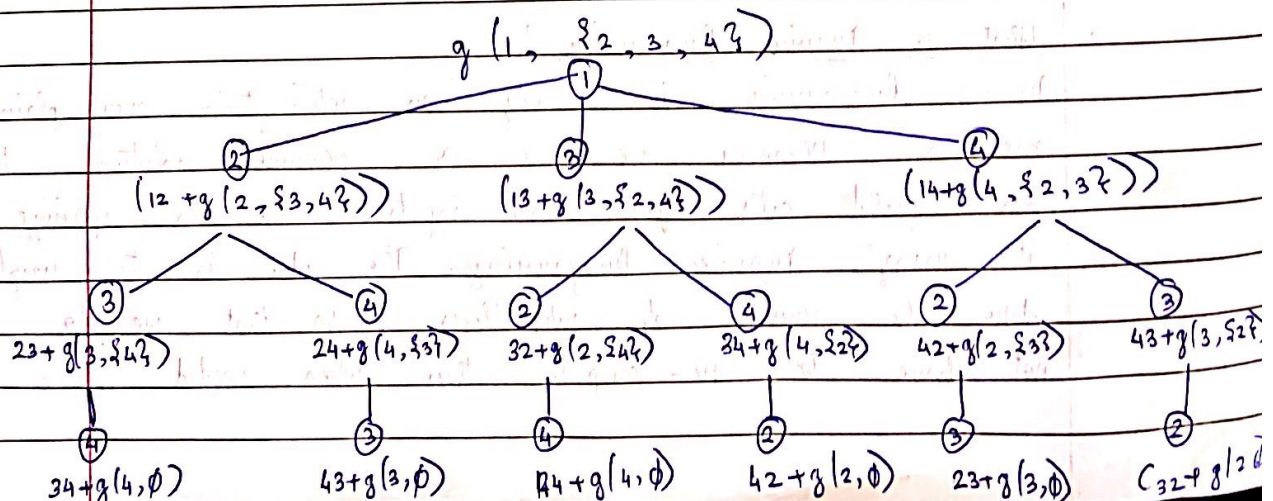 g (1, {2, 3, 4})
1
2 3 4
(12 + g (2, {3,4})) (13 + g (3, {2,4})) (14 + g (4, {2,3}))
3 4 2 4 2 3
23 + g(3, {4}) 24 + g(4, {3}) 32 + g(2, {4}) 34 + g (4, {2}) 42 + g(2, {3}) 43 + g(3, {2}
4 3 4 2 3 2
34 + g(4, ϕ) 43 + g(3, ϕ) 24 + g(4, ϕ) 42 + g(2, ϕ) 23 + g(3, ϕ) C32 + g(2